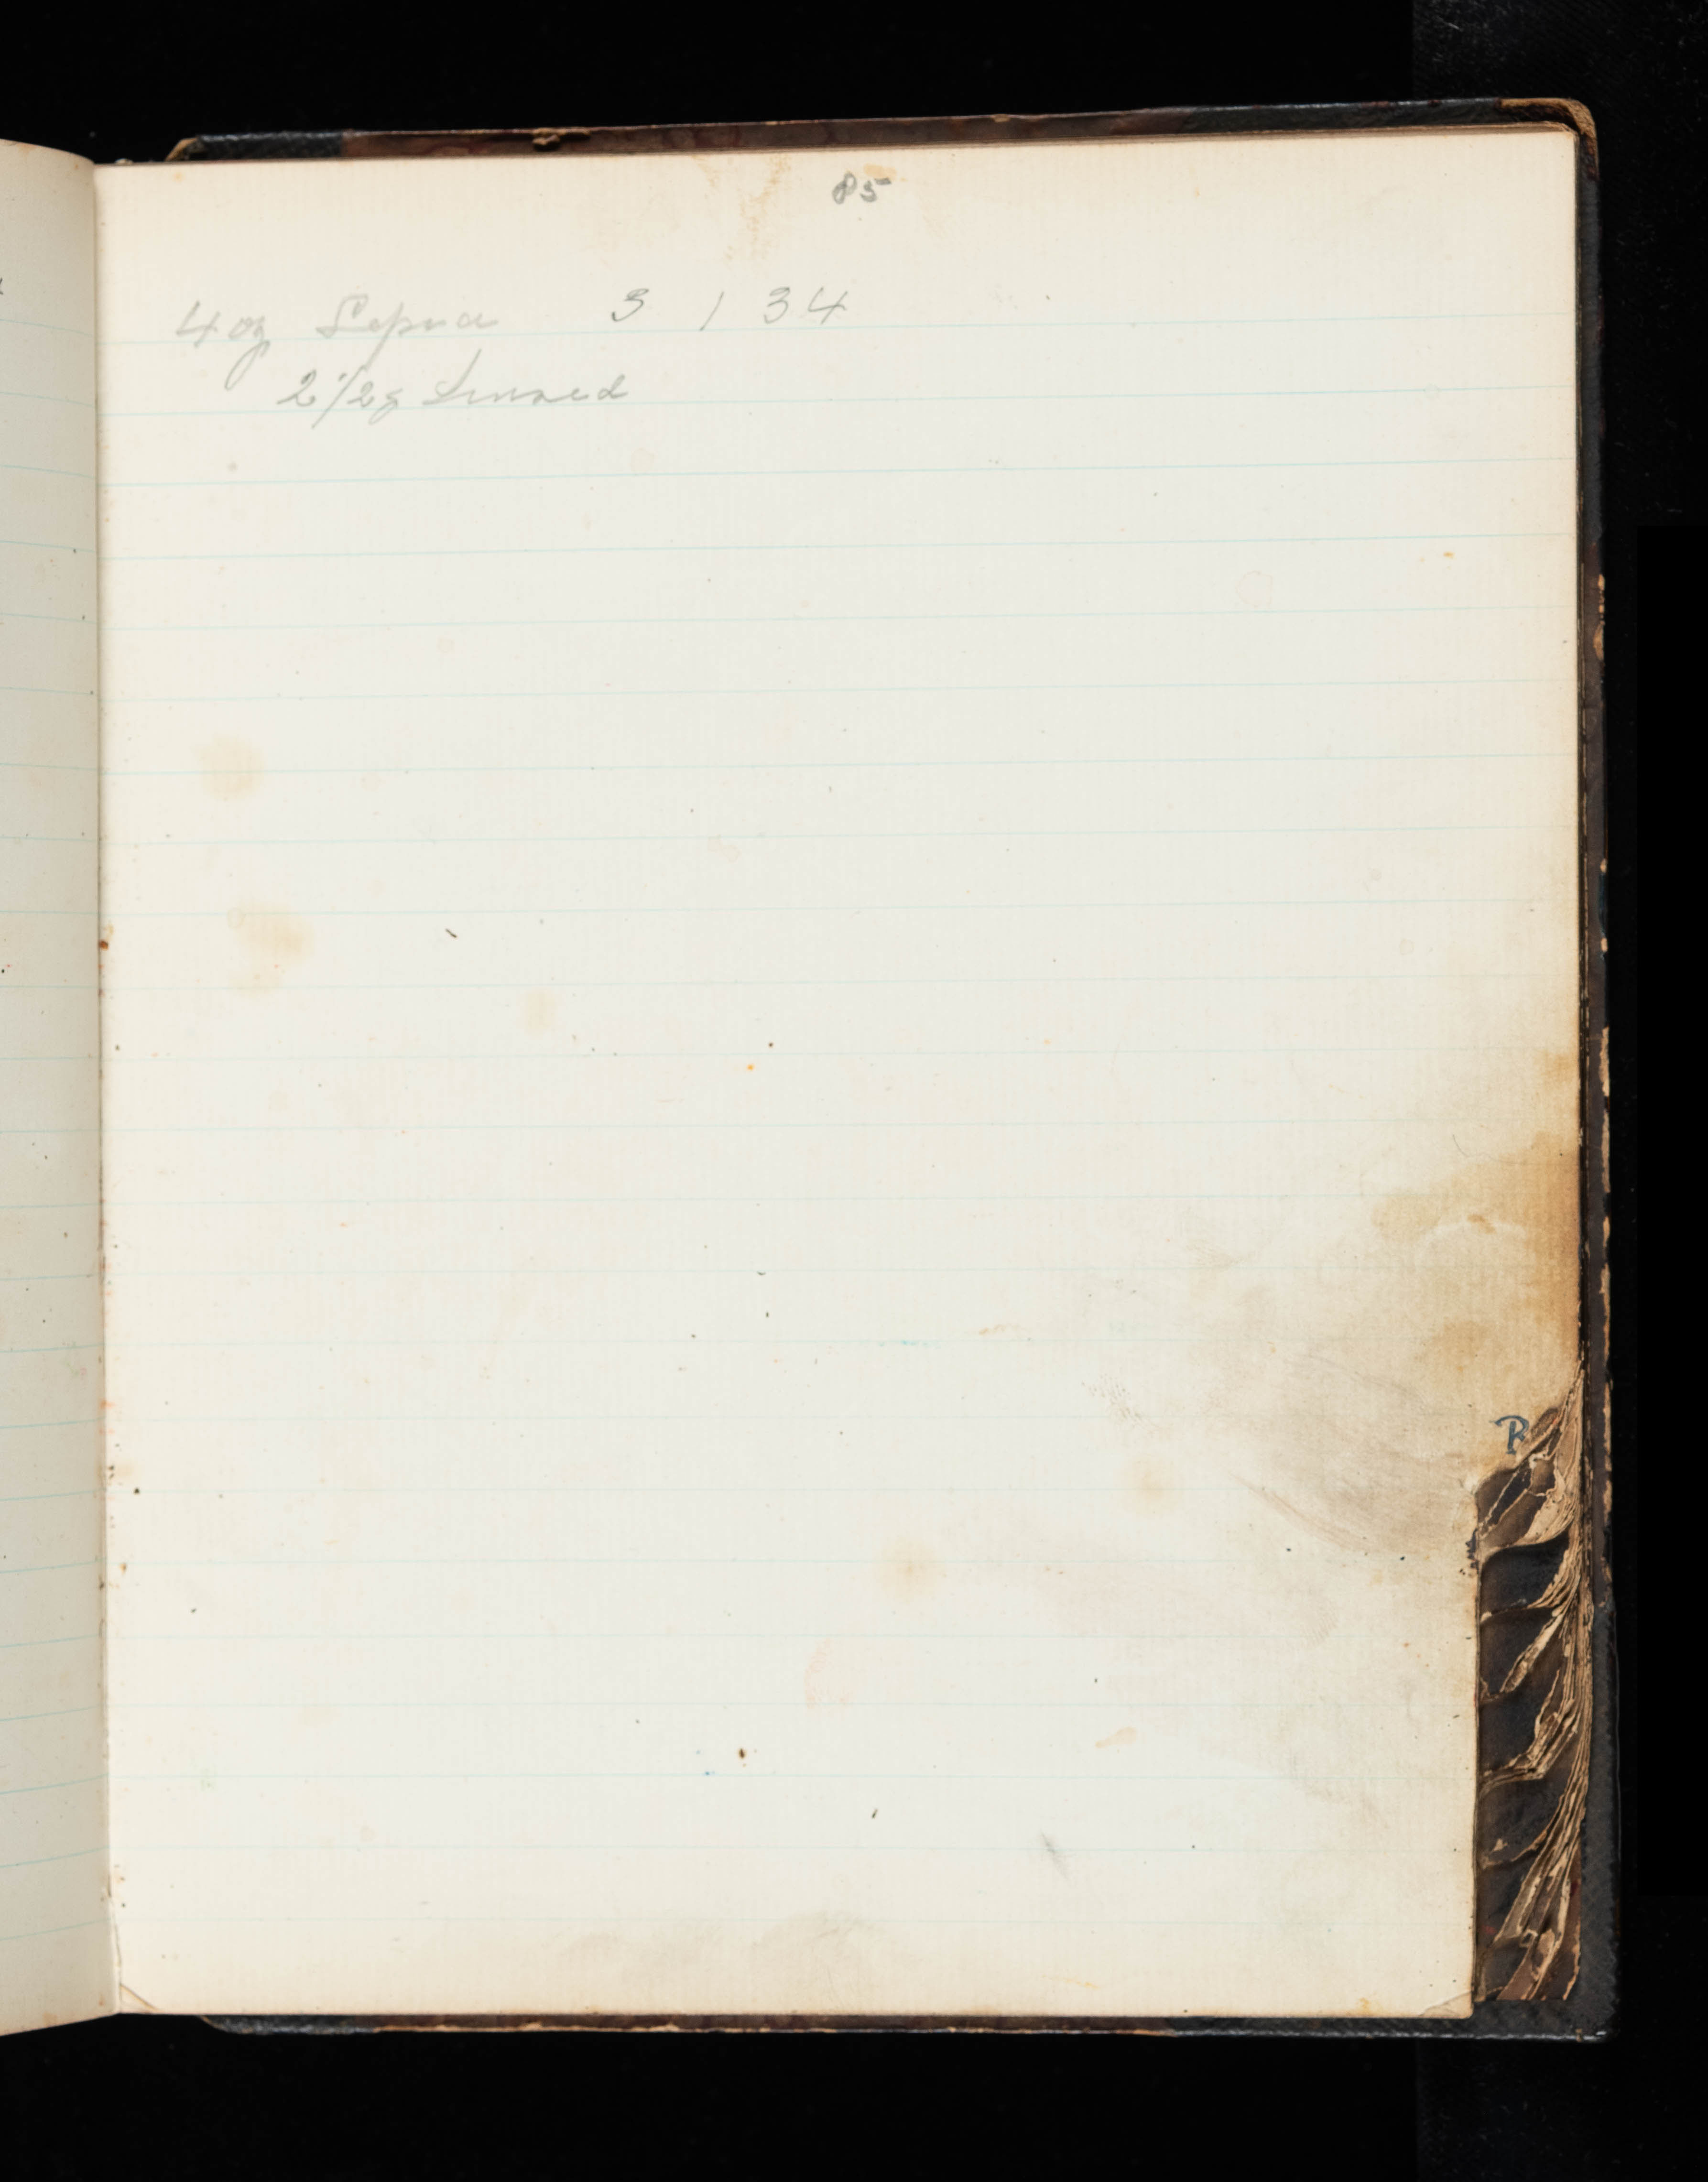 85
4 oz Sepia 3 / 34
2 1/2 g Linseed
R